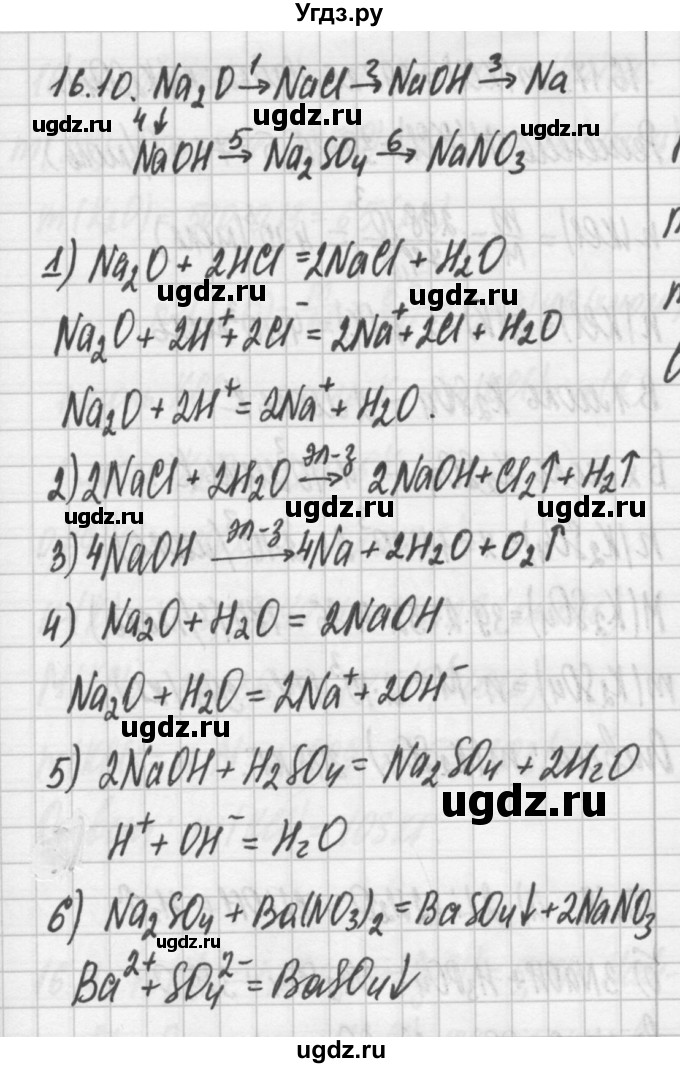 Угдз.ру
16.10. Na₂O →¹ NaCl →² NaOH →³ Na
4↓
NaOH →⁵ Na₂SO₄ →⁶ NaNO₃
ugdz.ru ugdz.ru ugdz.ru
1) Na₂O + 2HCl = 2NaCl + H₂O
ugdz.ru
Na₂O + 2H⁺ + 2Cl⁻ = 2Na⁺ + 2Cl + H₂O
Na₂O + 2H⁺ = 2Na⁺ + H₂O.
2) 2NaCl + 2H₂O эл-з → 2NaOH + Cl₂↑ + H₂↑
ugdz.ru ugdz.ru ugdz.ru
3) 4NaOH эл-з → 4Na + 2H₂O + O₂↑
4) Na₂O + H₂O = 2NaOH
Na₂O + H₂O = 2Na⁺ + 2OH⁻
ugdz.ru
5) 2NaOH + H₂SO₄ = Na₂SO₄ + 2H₂O
ugdz.ru
H⁺ + OH⁻ = H₂O
6) Na₂SO₄ + Ba(NO₃)₂ = BaSO₄↓ + 2NaNO₃
ugdz.ru
Ba²⁺ + SO₄²⁻ = BaSO₄↓
ugdz.ru